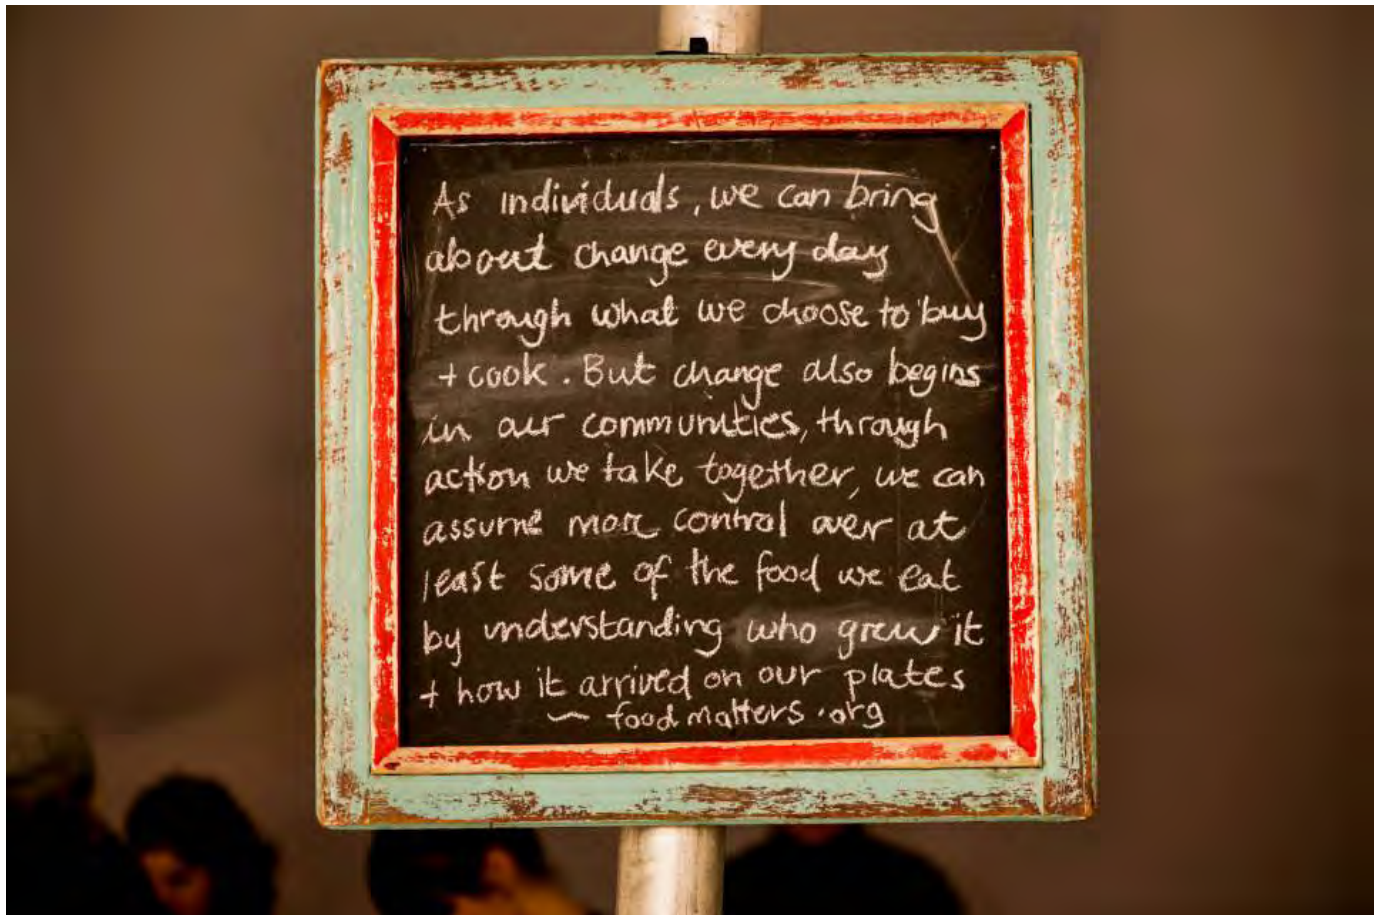 As individuals, we can bring
about change every day
through what we choose to buy
+ cook. But change also begins
in our communities, through
action we take together, we can
assume more control over at
least some of the food we eat
by understanding who grew it
+ how it arrived on our plates
~ foodmatters.org